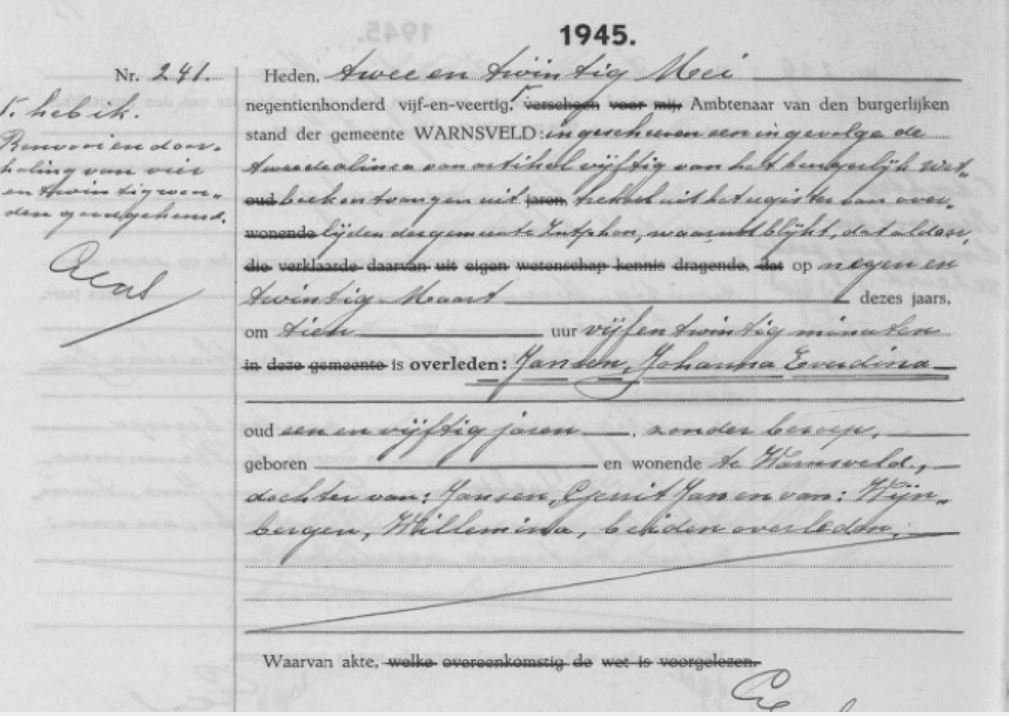 1945.
Nr. 241.
Heden, twee en twintig Mei
negentienhonderd vijf-en-veertig, verscheen voor mij, Ambtenaar van den burgerlijken
stand der gemeente WARNSVELD: ingeschreven een ingevolge de
tweede alinea van artikel vijftig van het burgerlijk Wet-
oud boek ontvangen uit jaren, treksel uit het register van over-
wonende lijden der gemeente Zutphen, waaruit blijkt, dat aldaar,
die verklaarde daarvan uit eigen wetenschap kennis dragende, dat op negen en
twintig Maart dezes jaars,
om tien uur vijf en twintig minuten
in deze gemeente is overleden: Jansen, Johanna Everdina
oud een en vijftig jaren, zonder beroep,
geboren en wonende te Warnsveld,
dochter van: Jansen, Gerrit Jan en van: Wijn-
bergen, Willemina, beiden overleden.
Waarvan akte, welke overeenkomstig de wet is voorgelezen.
heb ik.
Renvooi en door-
haling van vier
en twintig woor-
den goedgekeurd.